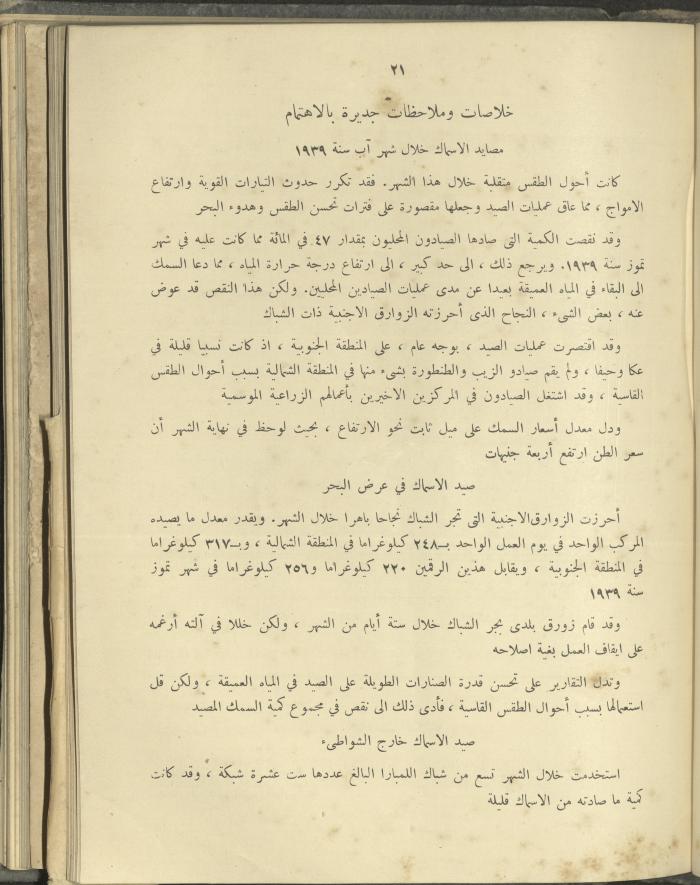 ٢١
خلاصات وملاحظات جديرة بالاهتمام
مصايد الاسماك خلال شهر آب سنة ١٩٣٩
كانت أحول الطقس متقلبة خلال هذا الشهر. فقد تكرر حدوث التيارات القوية وارتفاع
الامواج ، مما عاق عمليات الصيد وجعلها مقصورة على فترات تحسن الطقس وهدوء البحر
وقد نقصت الكمية التى صادها الصيادون المحليون بمقدار ٤٧ في المائة مما كانت عليه في شهر
تموز سنة ١٩٣٩. ويرجع ذلك ، الى حد كبير ، الى ارتفاع درجة حرارة المياه ، مما دعا السمك
الى البقاء في المياه العميقة بعيدا عن مدى عمليات الصيادين المحليين. ولكن هذا النقص قد عوض
عنه ، بعض الشىء ، النجاح الذى أحرزته الزوارق الاجنبية ذات الشباك
وقد اقتصرت عمليات الصيد ، بوجه عام ، على المنطقة الجنوبية ، اذ كانت نسبيا قليلة في
عكا وحيفا ، ولم يقم صيادو الزيب والطنطورة بشىء منها في المنطقة الشمالية بسبب أحوال الطقس
القاسية ، وقد اشتغل الصيادون في المركزين الاخيرين بأعمالهم الزراعية الموسمية
ودل معدل أسعار السمك على ميل ثابت نحو الارتفاع ، بحيث لوحظ في نهاية الشهر أن
سعر الطن ارتفع أربعة جنيهات
صيد الاسماك في عرض البحر
أحرزت الزوارق الاجنبية التى تجر الشباك نجاحا باهرا خلال الشهر. ويقدر معدل ما يصيده
المركب الواحد في يوم العمل الواحد بـ٢٤٨ كيلوغراما في المنطقة الشمالية ، وبـ٣١٧ كيلوغراما
في المنطقة الجنوبية ، ويقابل هذين الرقمين ٢٢٠ كيلوغراما و٢٥٦ كيلوغراما في شهر تموز
سنة ١٩٣٩
وقد قام زورق بلدى بجر الشباك خلال ستة أيام من الشهر ، ولكن خللا في آلته أرغمه
على ايقاف العمل بغية اصلاحه
وتدل التقارير على تحسن قدرة الصنارات الطويلة على الصيد في المياه العميقة ، ولكن قل
استعمالها بسبب أحوال الطقس القاسية ، فأدى ذلك الى نقص في مجموع كمية السمك المصيد
صيد الاسماك خارج الشواطىء
استخدمت خلال الشهر تسع من شباك اللمبارا البالغ عددها ست عشرة شبكة ، وقد كانت
كمية ما صادته من الاسماك قليلة